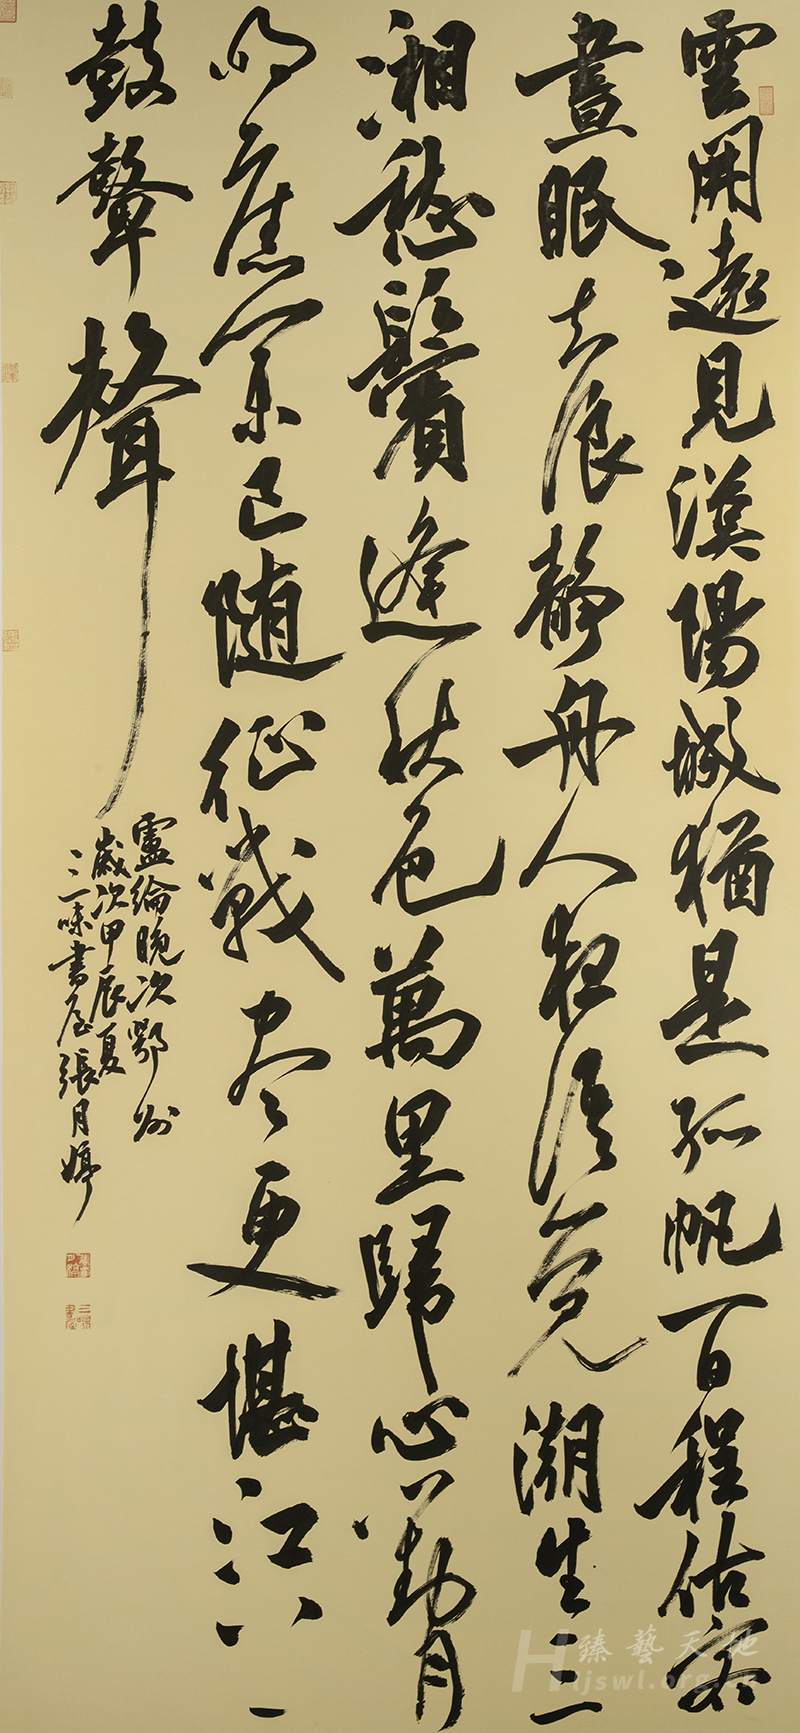 雲開遠見漢陽城猶是孤帆一日程估客
晝眠知浪静舟人夜語覺潮生三
湘愁鬢逢秋色萬里歸心對月
明舊業已随征戰尽更堪江上
鼓鼙聲
盧綸晚次鄂州
歲次甲辰夏
三味書屋張月婷
三味書屋
臻藝天地